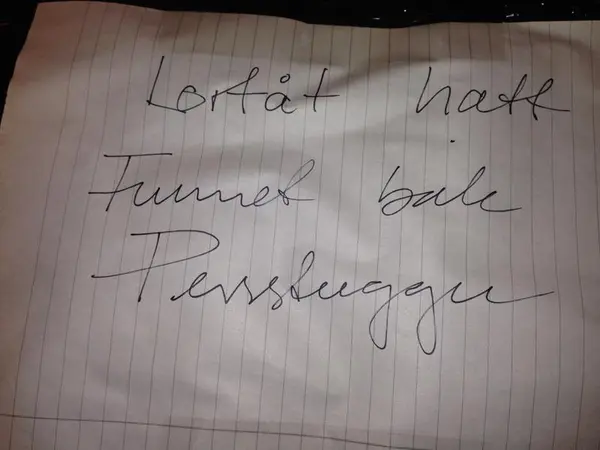 Lortåt hatt
Funnet bak
Persstuggu